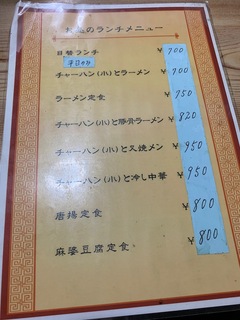 のランチメニュー
日替ランチ ￥700
平日のみ
チャーハン(小)とラーメン ￥700
ラーメン定食 ￥750
チャーハン(小)と豚骨ラーメン ￥820
チャーハン(小)と叉焼メン ￥950
チャーハン(小)と冷し中華 ￥950
唐揚定食 ￥800
麻婆豆腐定食 ￥800